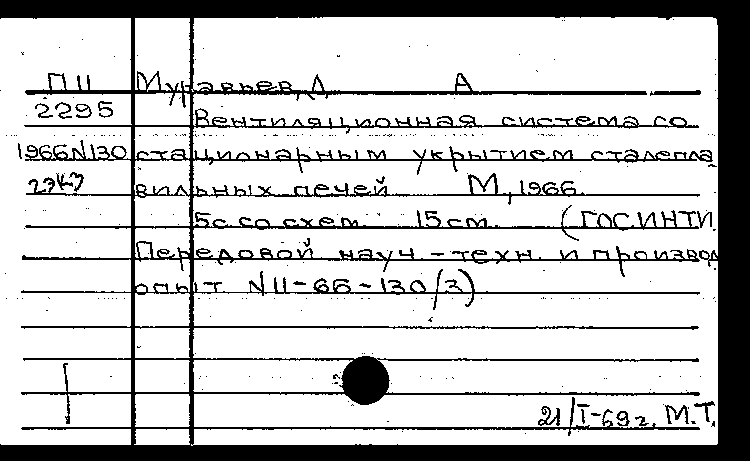 П11 Муравьев, Д А
2295 Вентиляционная система со
1966N130 стационарным укрытием сталепла
вильных печей М, 1966.
5с. со схем. 15см. (ГОСИНТИ
Передовой науч.-техн. и производ
опыт N11-66-130/3)
21/I-69г. М.Т.